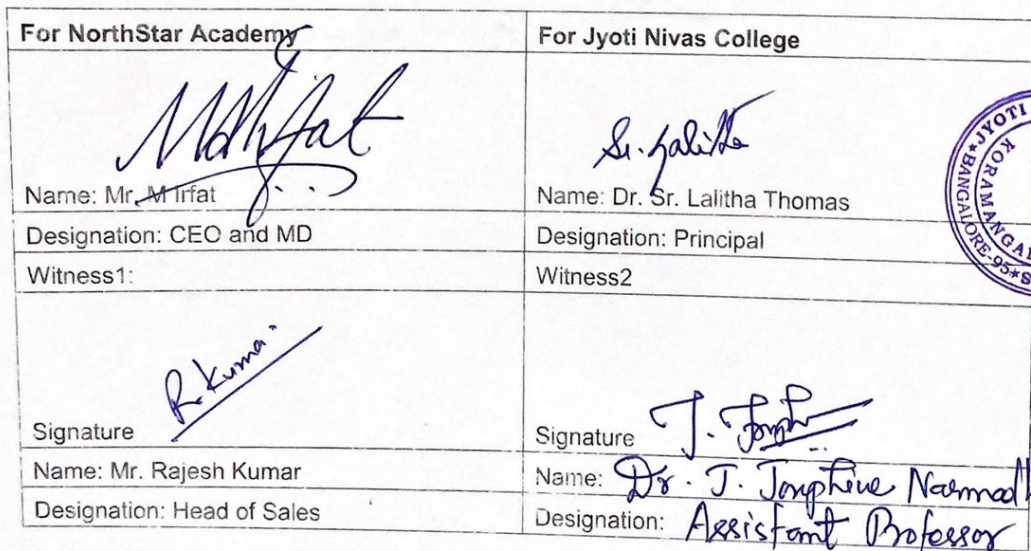 For NorthStar Academy
For Jyoti Nivas College
Name: Mr. M Irfat
Name: Dr. Sr. Lalitha Thomas
Designation: CEO and MD
Designation: Principal
Witness1:
Witness2
R. Kumar
Signature
Signature
Name: Mr. Rajesh Kumar
Name: Dr. J.
Designation: Head of Sales
Designation: Assistant Professor
JYOTI
KORAMANGALA
BANGALORE-95